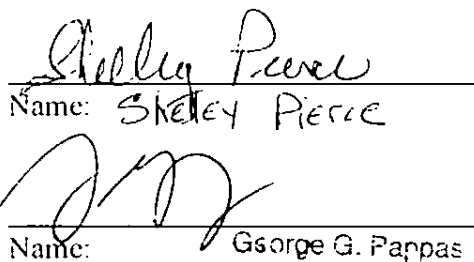 Shelley Pierce
Name: Shelley Pierce
Name: George G. Pappas